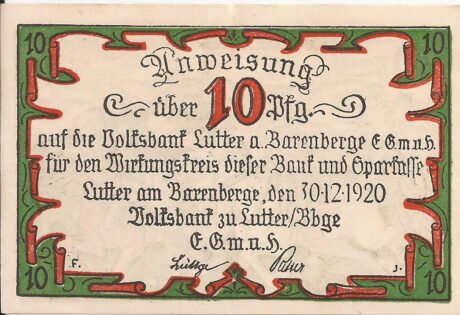 10 10
Anweisung
über 10 Pfg.
auf die Volksbank Lutter a. Barenberge E.G.m.u.H.
für den Wirkungskreis dieser Bank und Sparkasse
Lutter am Barenberge, den 30·12·1920
Volksbank zu Lutter/Bbge
E.G.m.u.H.
F. J.
10 10